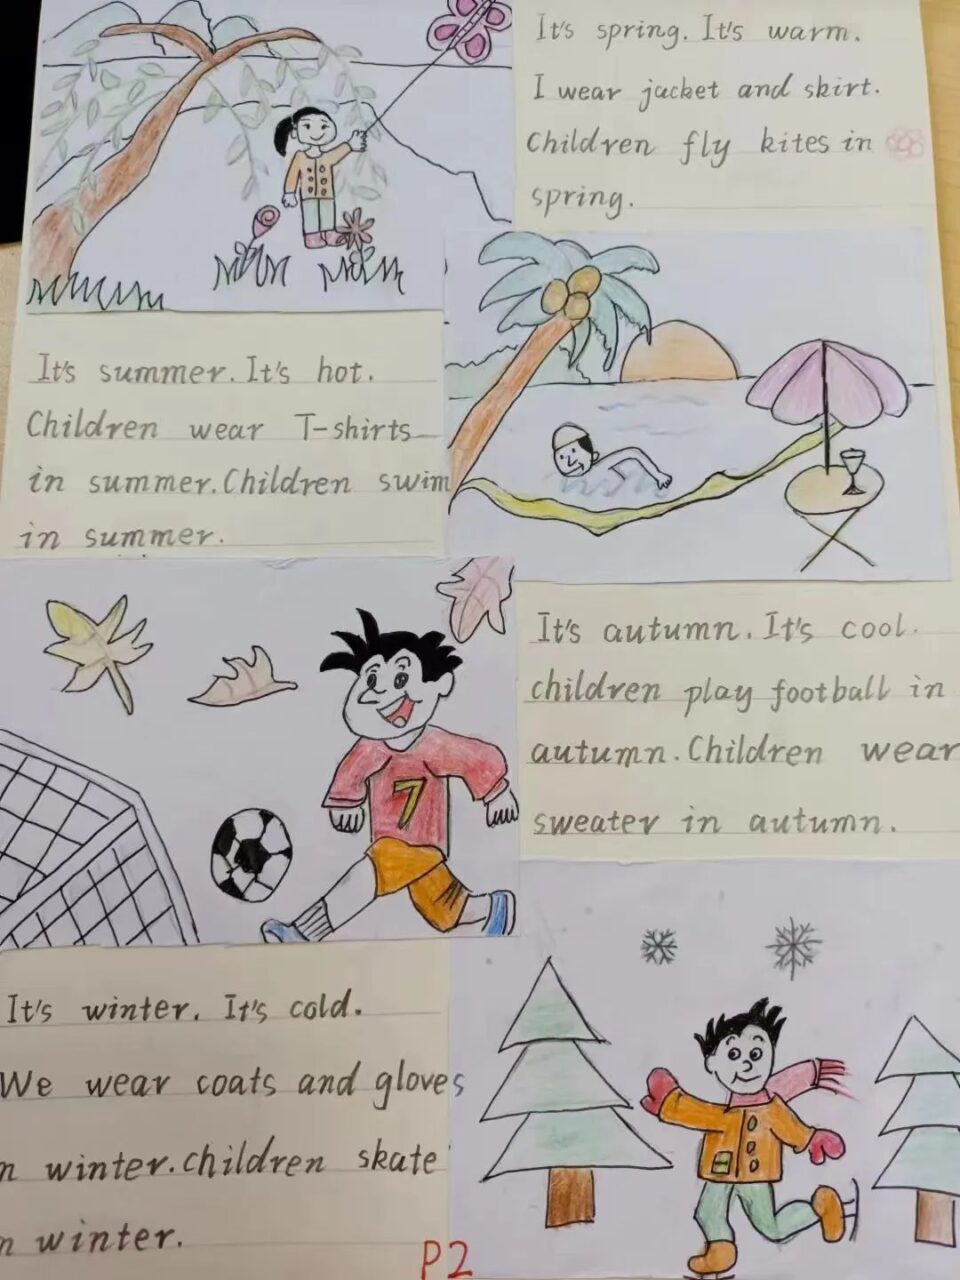 It's spring. It's warm.
I wear jacket and skirt.
Children fly kites in
spring.
It's summer. It's hot.
Children wear T-shirts
in summer. Children swim
in summer.
7
It's autumn. It's cool.
children play football in
autumn. Children wear
sweater in autumn.
It's winter. It's cold.
We wear coats and gloves
n winter. children skate
n winter.
P2